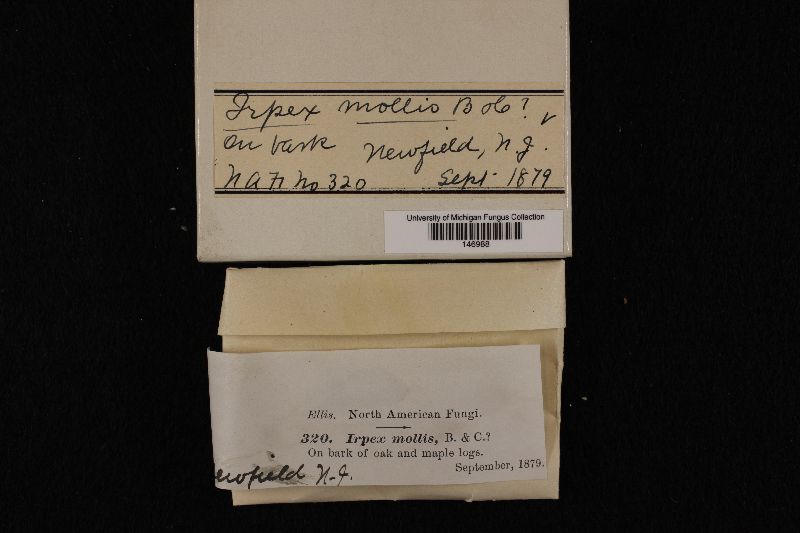 Irpex mollis B & C?
On bark Newfield, N.J.
N A F No 320 Sept 1879
University of Michigan Fungus Collection
146988
Ellis. North American Fungi.
320. Irpex mollis, B. & C.?
On bark of oak and maple logs.
September, 1879.
ewfield N.J.